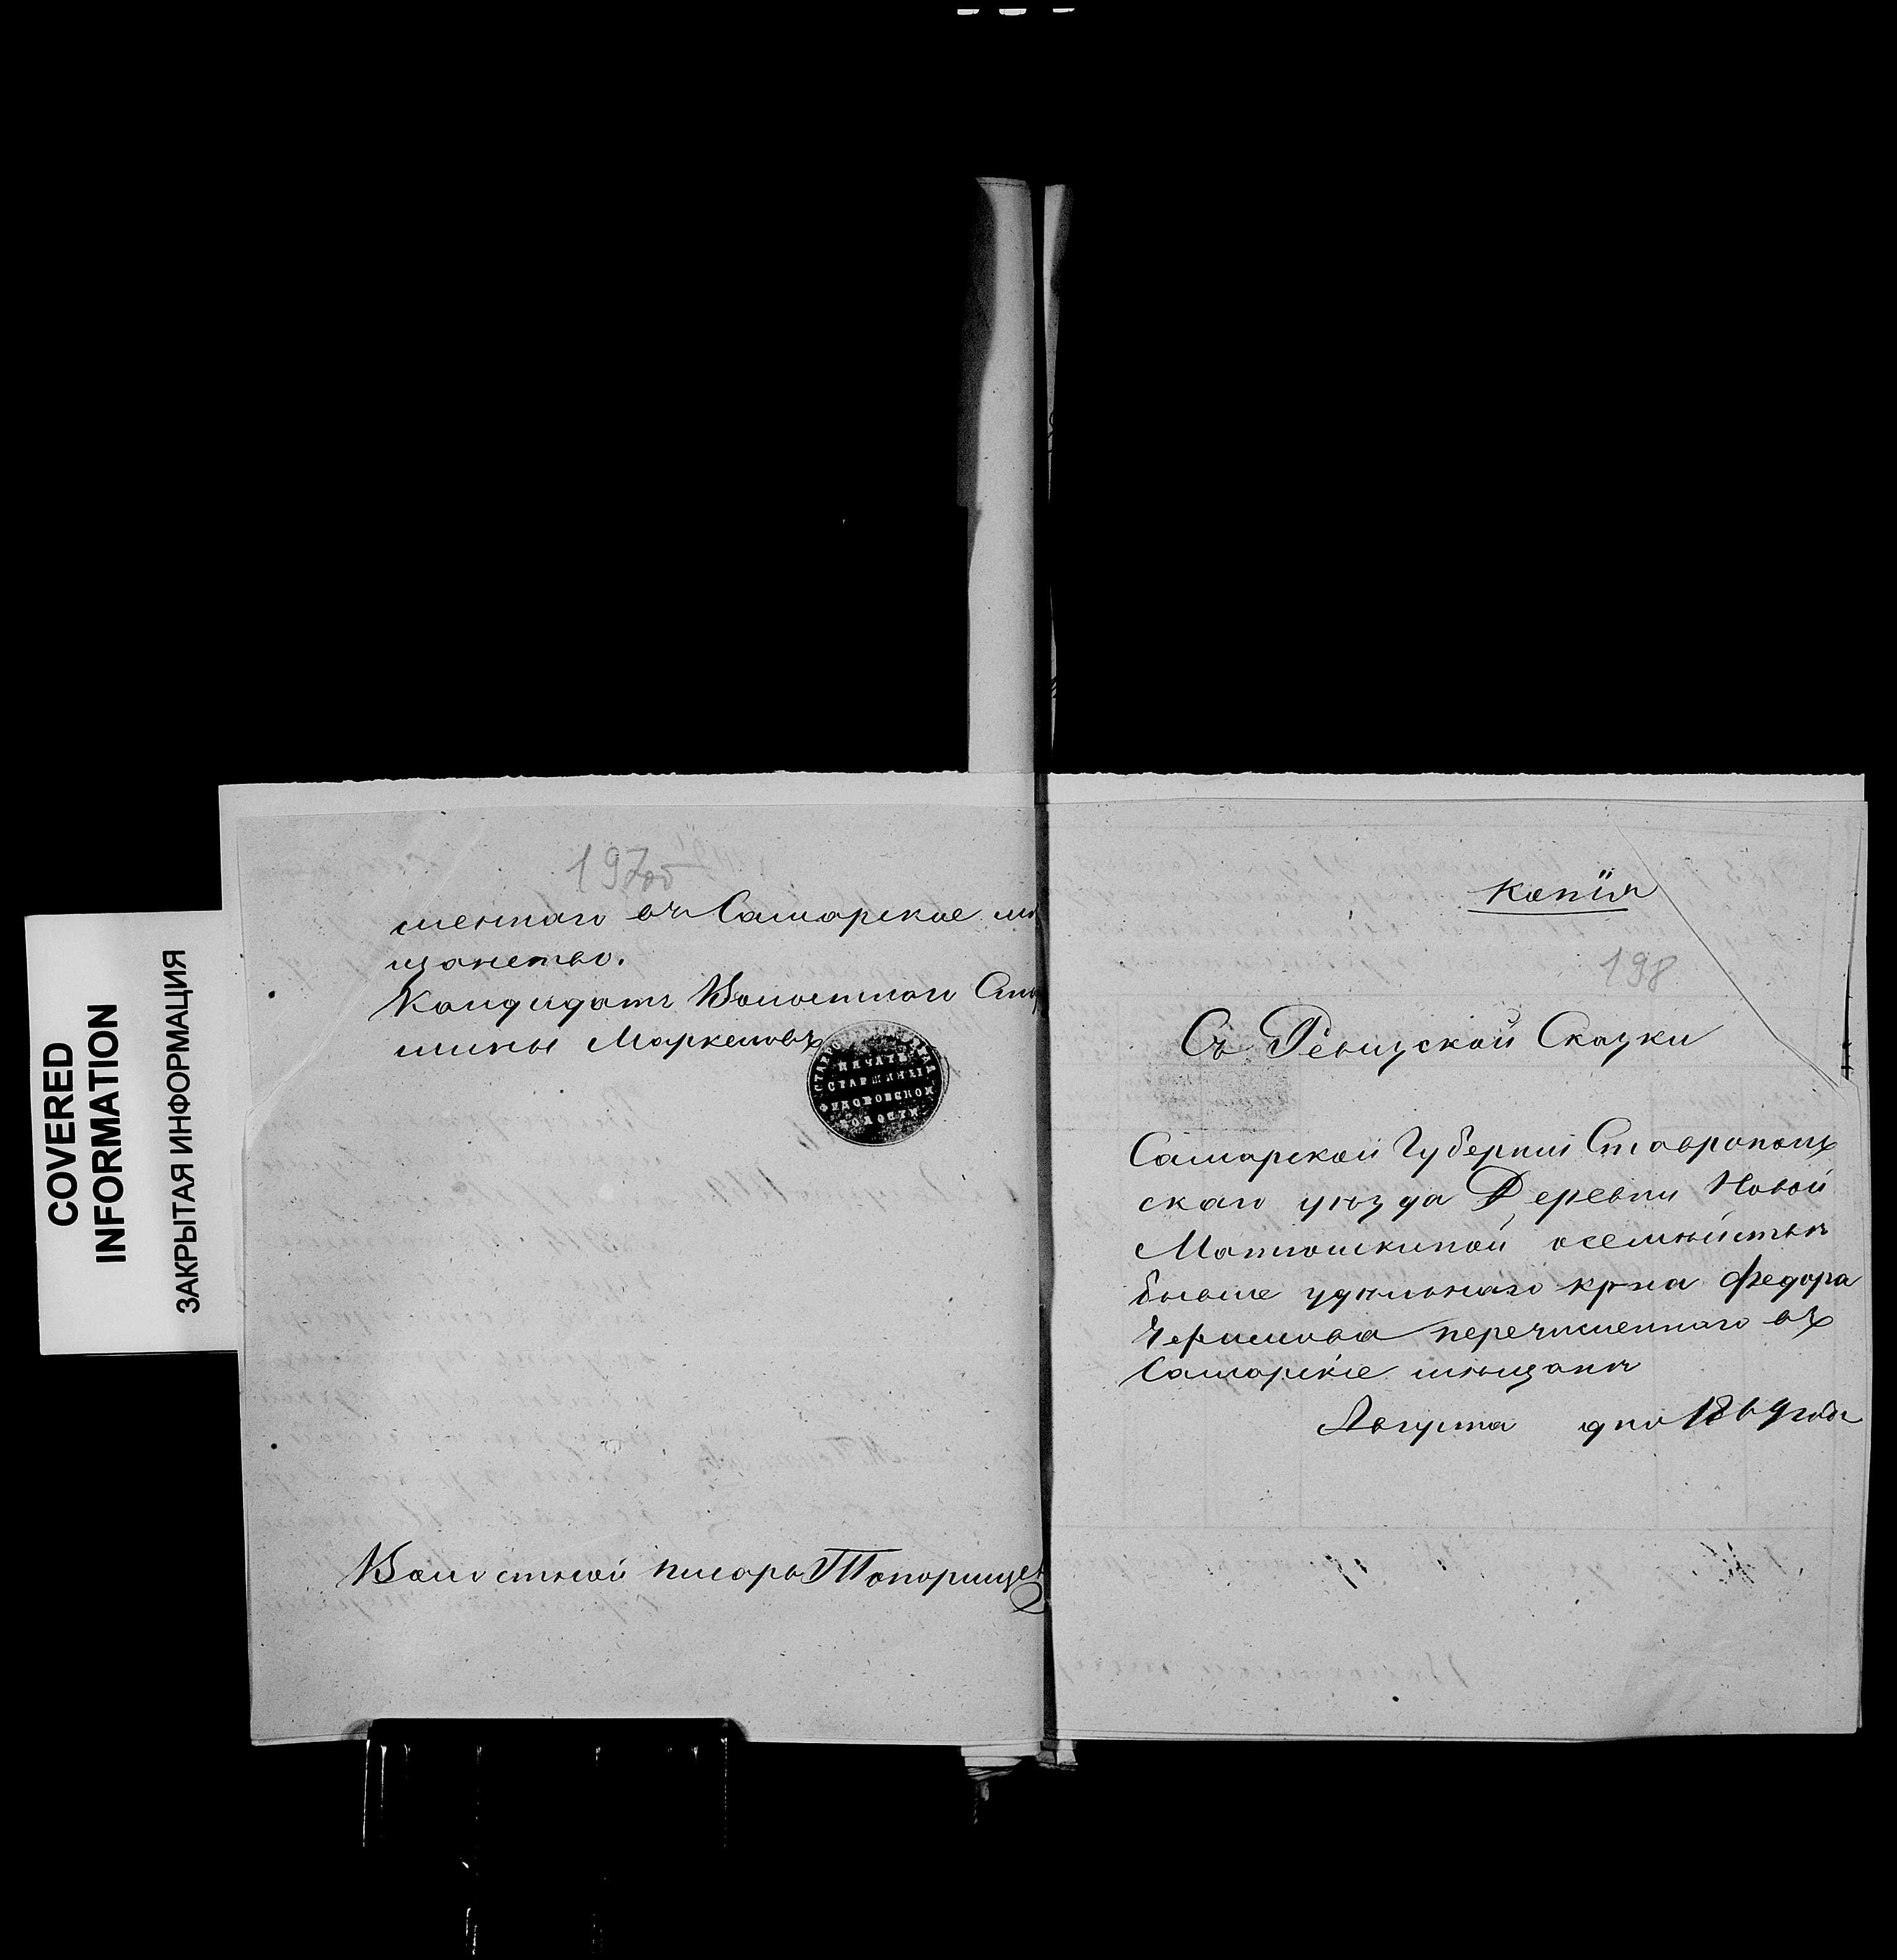 COVERED
INFORMATION
ЗАКРЫТАЯ ИНФОРМАЦИЯ
197об
сленнаго въ Самарское мѣ
щанство.
Кандидатъ Волостнаго Стар
шины Маркеловъ
ПЕЧАТЬ
СТАРШИНЫ
ВОЛОСТИ
Волостной писарь Топорищев
Копія
198
Съ Ревизской Сказки
Самарской Губерніи Ставрополь
скаго уѣзда Деревни Новой
Матюшкиной о семѣйствѣ
бывше удѣльнаго кр-на Федора
перечисленнаго въ
Самарскіе мѣщанѣ
Августа дня 1869 года